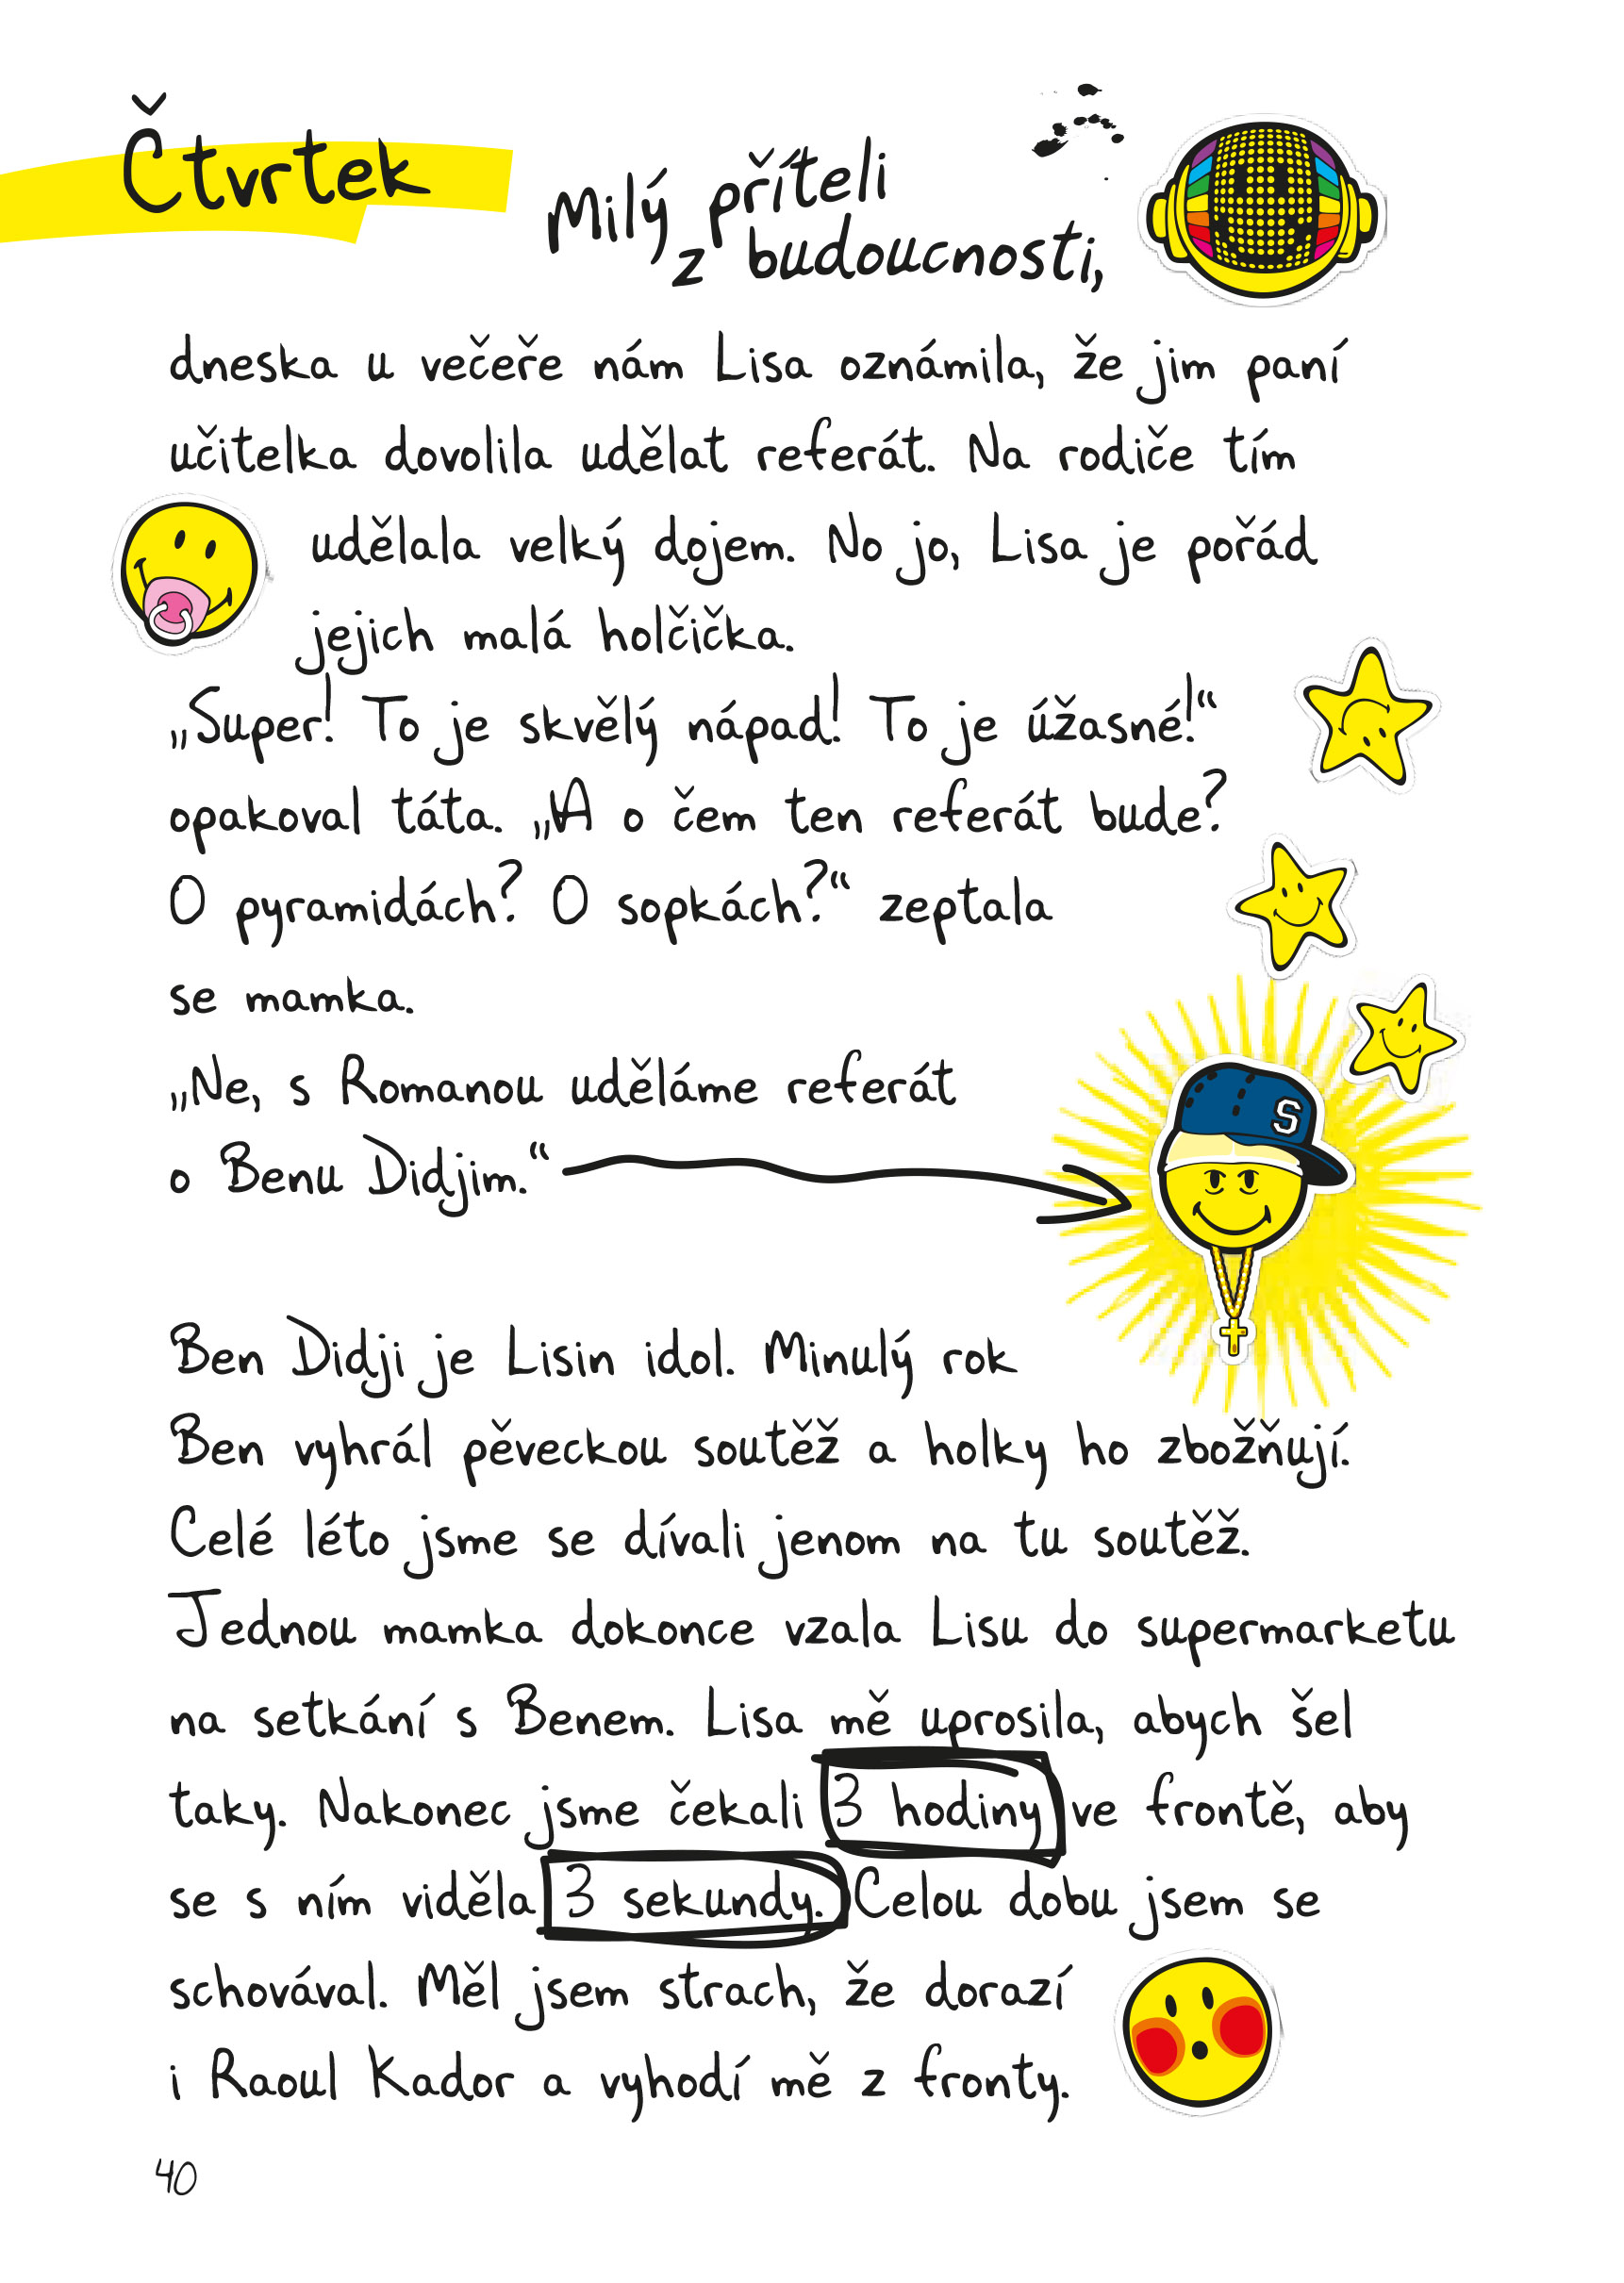 Čtvrtek
Milý příteli
z budoucnosti,
dneska u večeře nám Lisa oznámila, že jim paní
učitelka dovolila udělat referát. Na rodiče tím
udělala velký dojem. No jo, Lisa je pořád
jejich malá holčička.
„Super! To je skvělý nápad! To je úžasné!“
opakoval táta. „A o čem ten referát bude?
O pyramidách? O sopkách?“ zeptala
se mamka.
„Ne, s Romanou uděláme referát
o Benu Didjim.“
S
Ben Didji je Lisin idol. Minulý rok
Ben vyhrál pěveckou soutěž a holky ho zbožňují.
Celé léto jsme se dívali jenom na tu soutěž.
Jednou mamka dokonce vzala Lisu do supermarketu
na setkání s Benem. Lisa mě uprosila, abych šel
taky. Nakonec jsme čekali 3 hodiny ve frontě, aby
se s ním viděla 3 sekundy. Celou dobu jsem se
schovával. Měl jsem strach, že dorazí
i Raoul Kador a vyhodí mě z fronty.
40